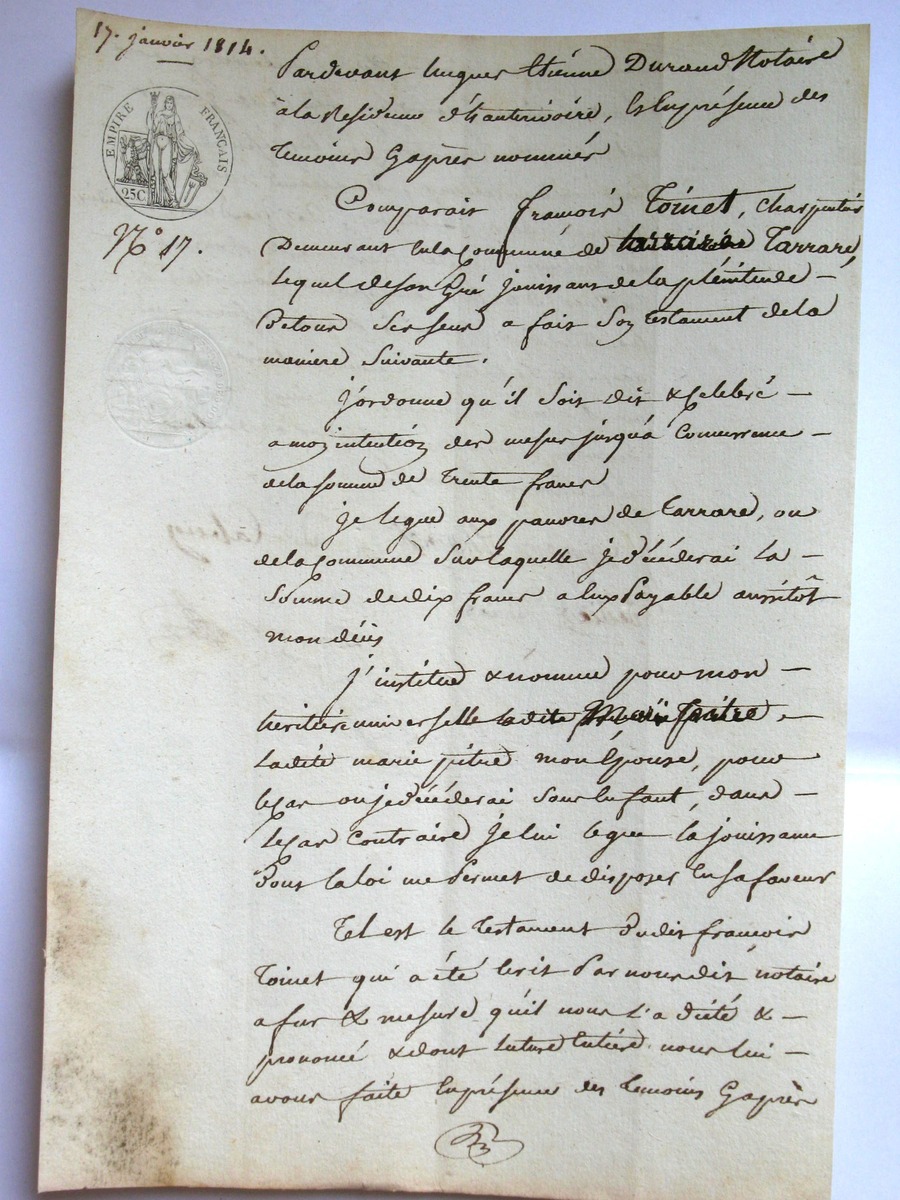 17. janvier 1814.
EMPIRE FRANÇAIS
25C
N° 17.
Pardevant hugues Etienne Durand Notaire
à la Residence d'St anterivoire, & En présence des
temoins Cyaprès nommés
Comparait francois Toinet, charpentier
Demeurant en la Commune de Tarrare
lequel de son Gré jouissant de la plénitude
De tous Ses sens a fait Son testament de la
maniere Suivante.
j'ordonne qu'il Soit dit & Celebré
a mon intention des messes jusqu'a Concurrence
de la somme de Trente francs
je legue aux pauvres de tarrare, ou
de la Commune Sur laquelle je décéderai La
Somme de dix francs a Eux Payable aussitôt
mon décès
j'institue & nomme pour mon
héritière universelle
Ladite marie pitre mon Epouse, pour
le Cas ou je décéderai Sans Enfant, dans
le Cas Contraire je lui legue la jouissance
Dont la loi me Permet de disposer En sa faveur
Tel est le Testament Dudit francois
Toinet qui a été Ecrit Par nous dit notaire
a fur & mesure qu'il nous l'a dicté &
prononcé & dont Lecture Entière nous lui
avons faite En présence des temoins Cyaprès